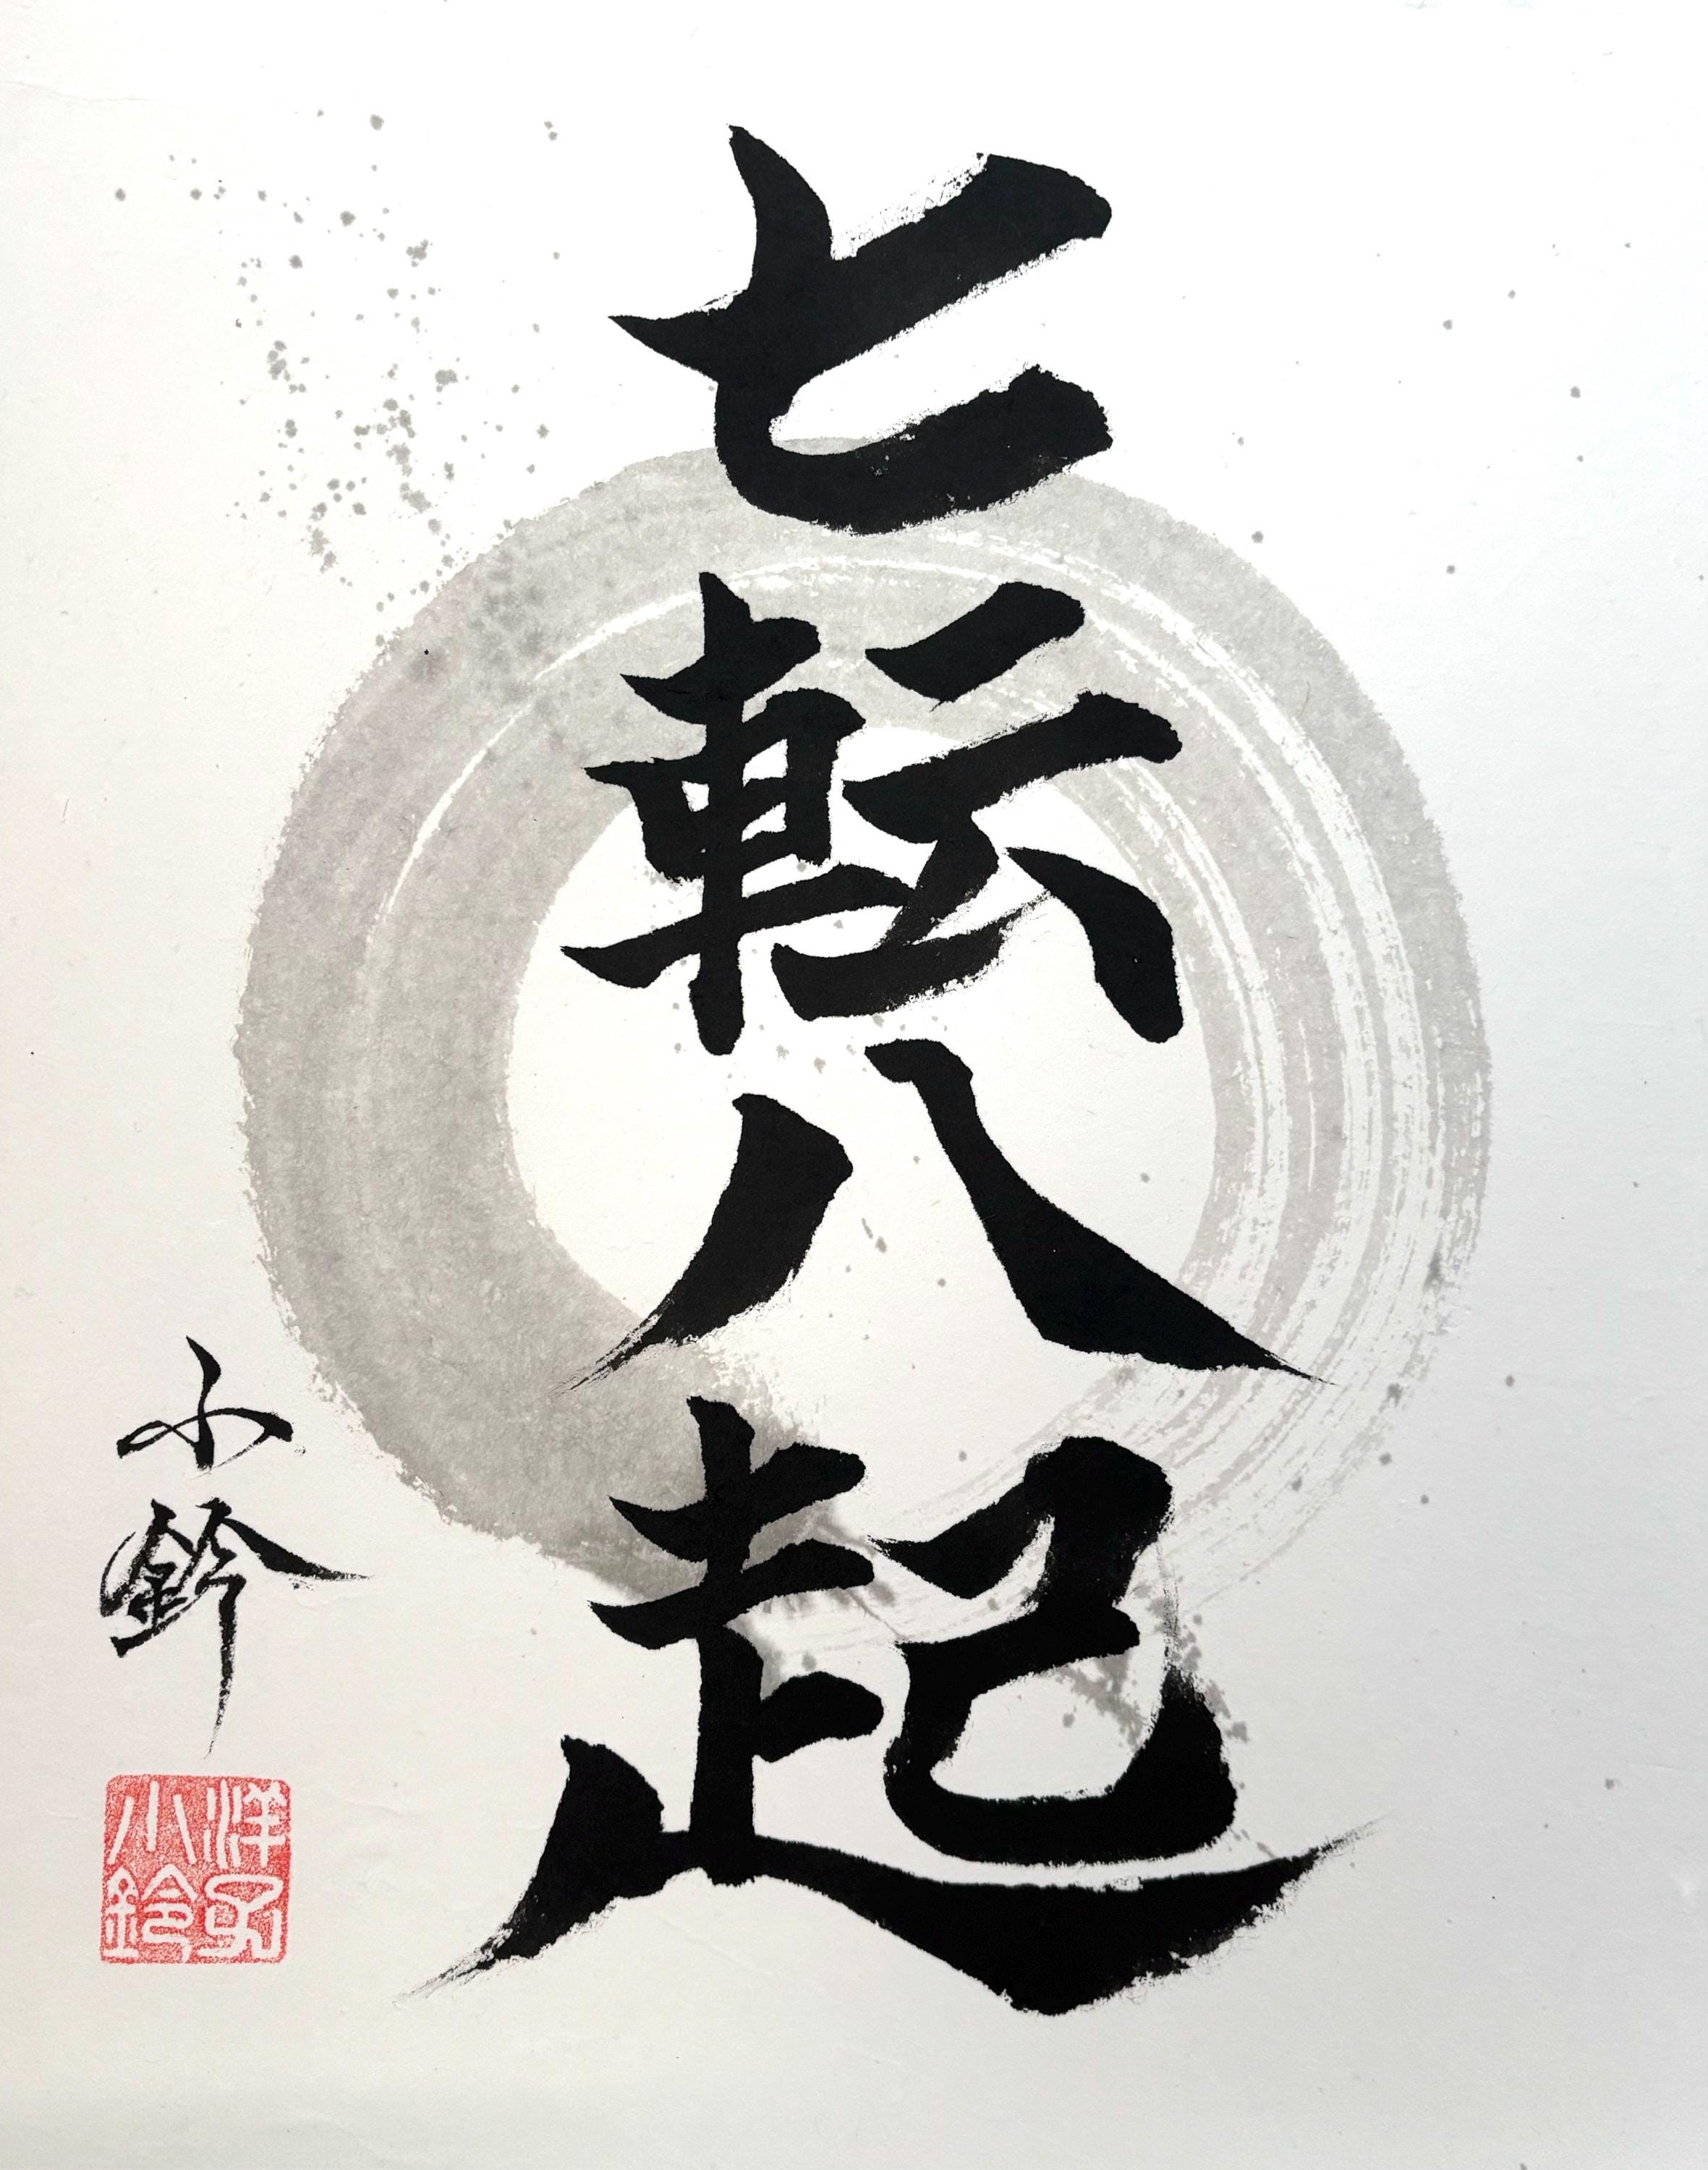 七転八起
小鈴
洋子
小鈴